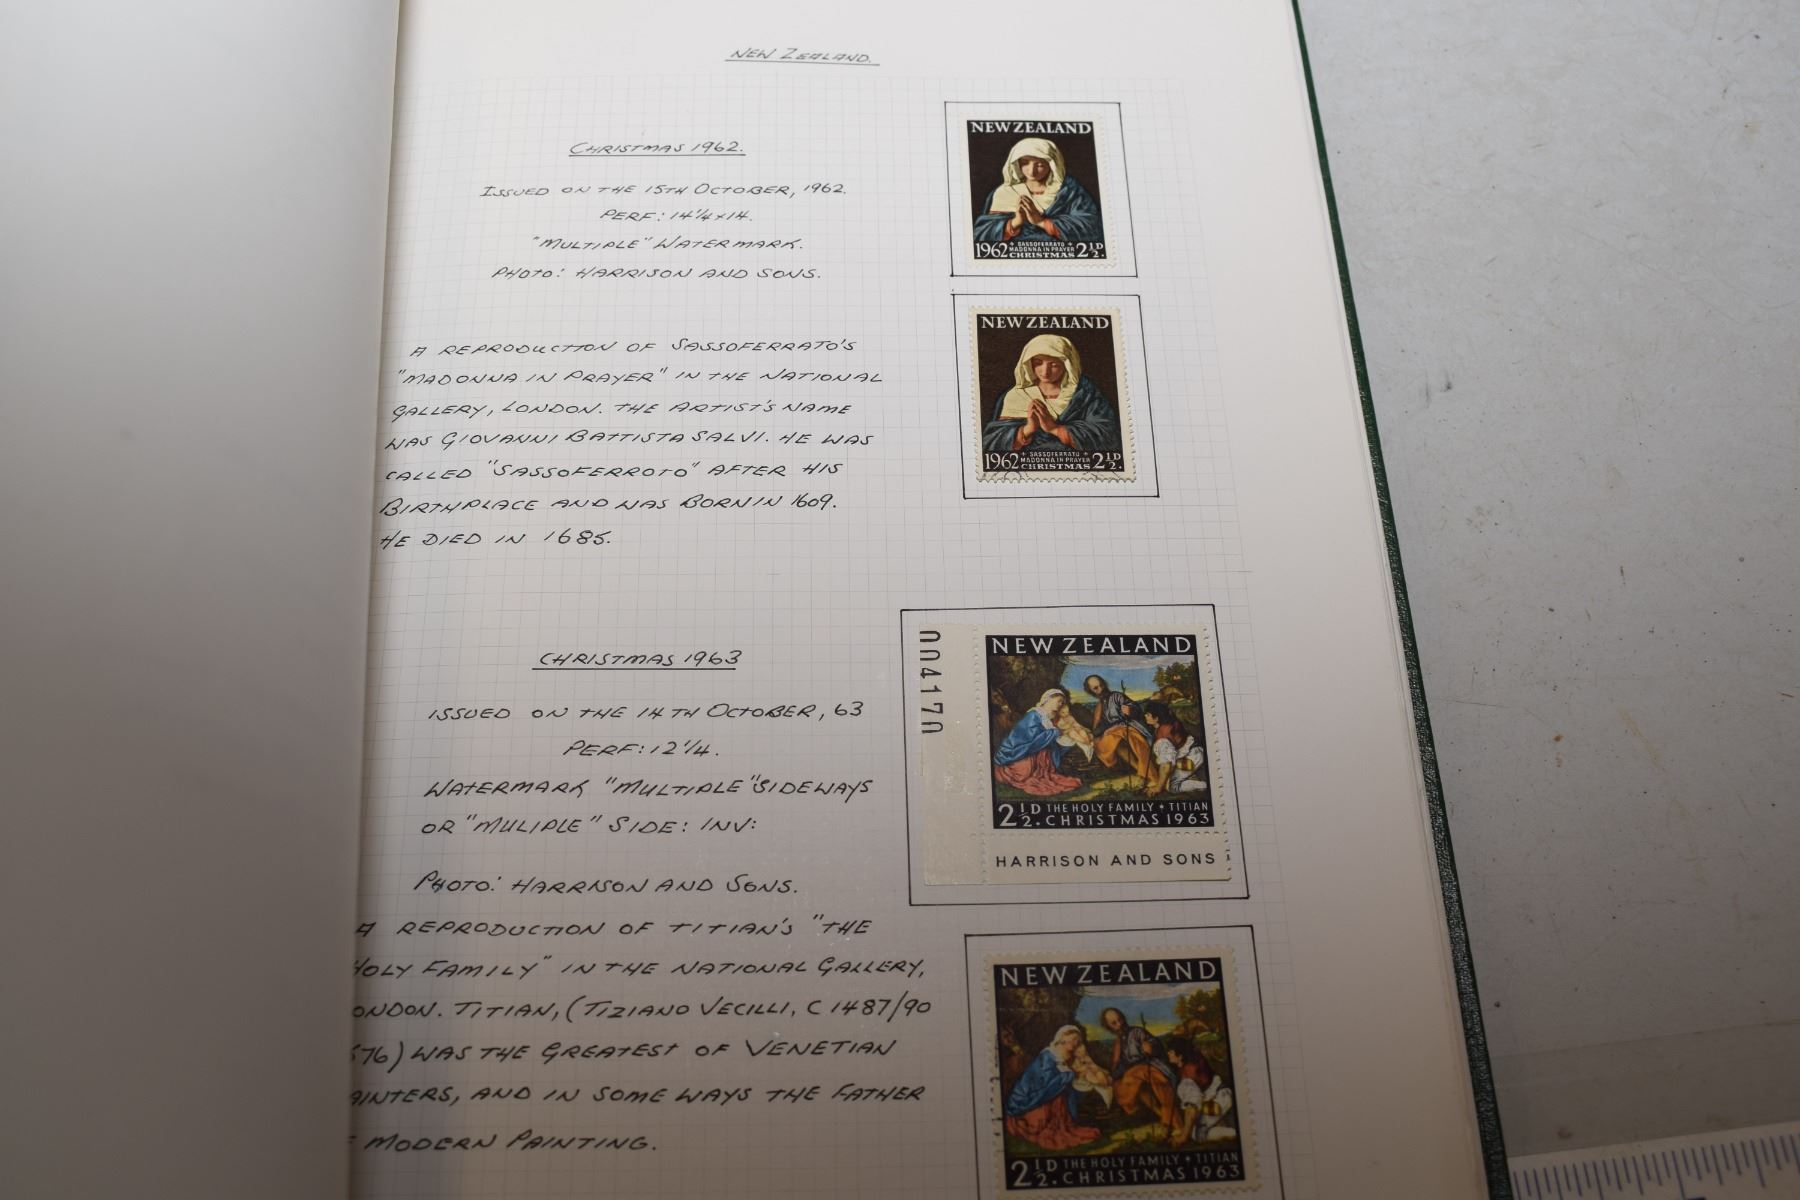 NEW ZEALAND.
CHRISTMAS 1962.
ISSUED ON THE 15TH OCTOBER, 1962.
PERF: 14 1/4 x 14.
"MULTIPLE" WATERMARK.
PHOTO: HARRISON AND SONS.
A REPRODUCTION OF SASSOFERRATO'S
"MADONNA IN PRAYER" IN THE NATIONAL
GALLERY, LONDON. THE ARTIST'S NAME
WAS GIOVANNI BATTISTA SALVI. HE WAS
CALLED "SASSOFERROTO" AFTER HIS
BIRTHPLACE AND WAS BORN IN 1609.
HE DIED IN 1685.
NEW ZEALAND
1962 + SASSOFERRATO + MADONNA IN PRAYER CHRISTMAS 2 1/2 D.
NEW ZEALAND
1962 + SASSOFERRATO + MADONNA IN PRAYER CHRISTMAS 2 1/2 D.
CHRISTMAS 1963
ISSUED ON THE 14TH OCTOBER, 63
PERF: 12 1/4.
WATERMARK "MULTIPLE" SIDEWAYS
OR "MULIPLE" SIDE: INV:
PHOTO: HARRISON AND SONS.
A REPRODUCTION OF TITIAN'S "THE
HOLY FAMILY" IN THE NATIONAL GALLERY,
ONDON. TITIAN, (TIZIANO VECILLI, C 1487/90
576) WAS THE GREATEST OF VENETIAN
AINTERS, AND IN SOME WAYS THE FATHER
F MODERN PAINTING.
004170
NEW ZEALAND
2 1/2 D. THE HOLY FAMILY + TITIAN
CHRISTMAS 1963
HARRISON AND SONS
NEW ZEALAND
2 1/2 D. THE HOLY FAMILY + TITIAN
CHRISTMAS 1963